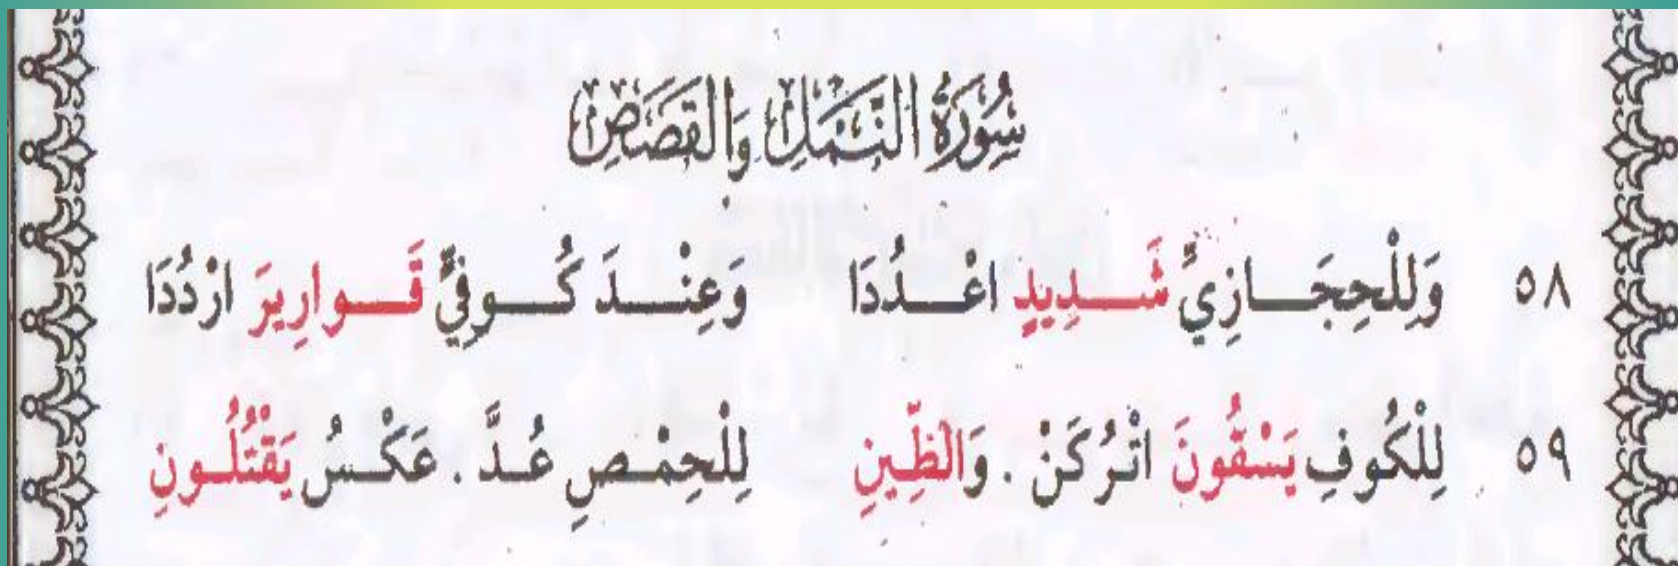 سُورَةُ النَّمْلِ وَالقَصَصِ
٥٨ وَلِلْحِجَازِيِّ شَدِيدٍ اعْدُدَا وَعِنْدَ كُوفِيٍّ قَوارِيرَ ارْدُدَا
٥٩ لِلْكُوفِ يَسْقُونَ اتْرُكَنْ . وَالظِّينِ لِلْحِمْصِ عُدَّ . عَكْسُ يَقْتُلُونِ